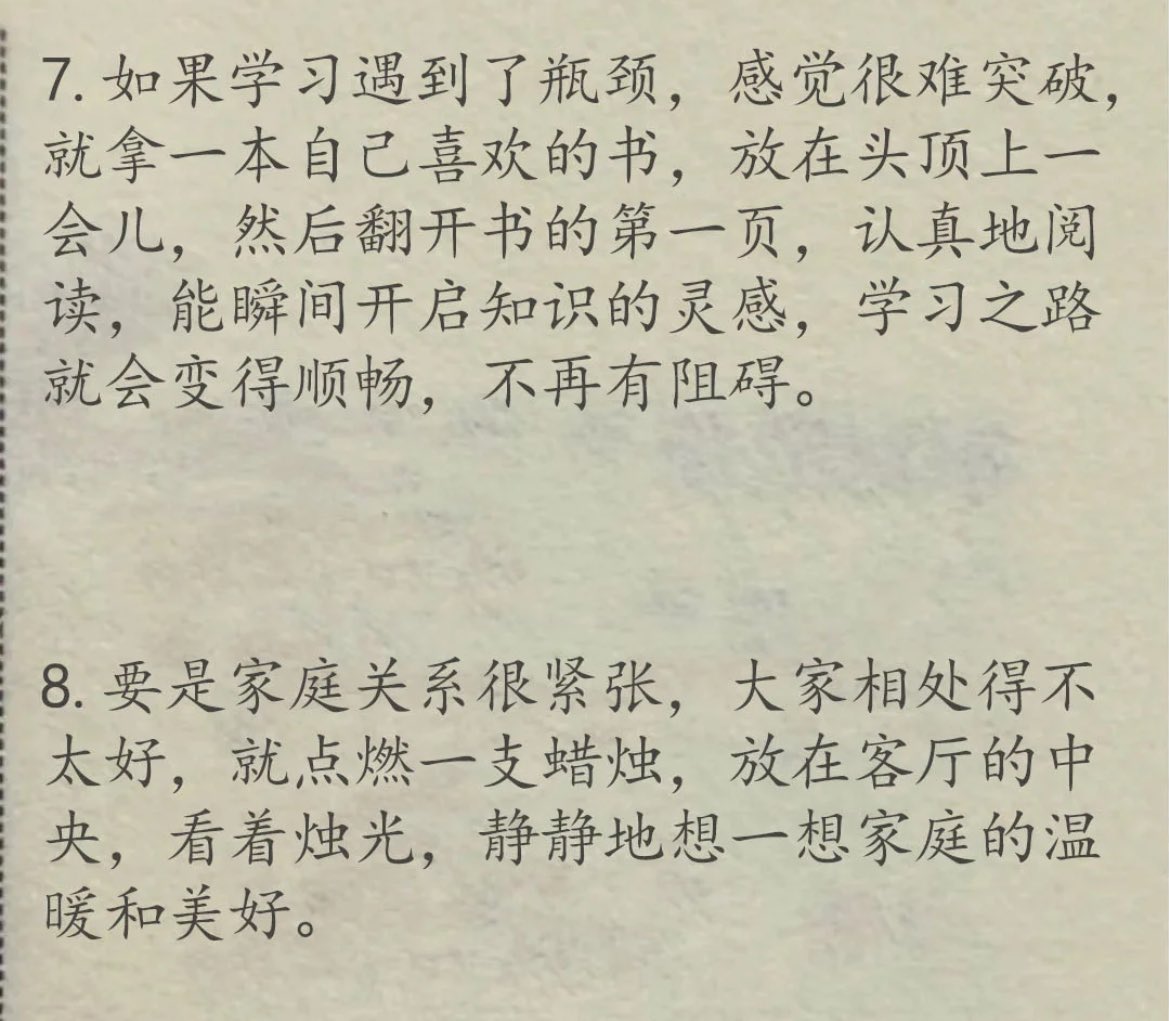 7. 如果学习遇到了瓶颈，感觉很难突破，
就拿一本自己喜欢的书，放在头顶上一
会儿，然后翻开书的第一页，认真地阅
读，能瞬间开启知识的灵感，学习之路
就会变得顺畅，不再有阻碍。
8. 要是家庭关系很紧张，大家相处得不
太好，就点燃一支蜡烛，放在客厅的中
央，看着烛光，静静地想一想家庭的温
暖和美好。